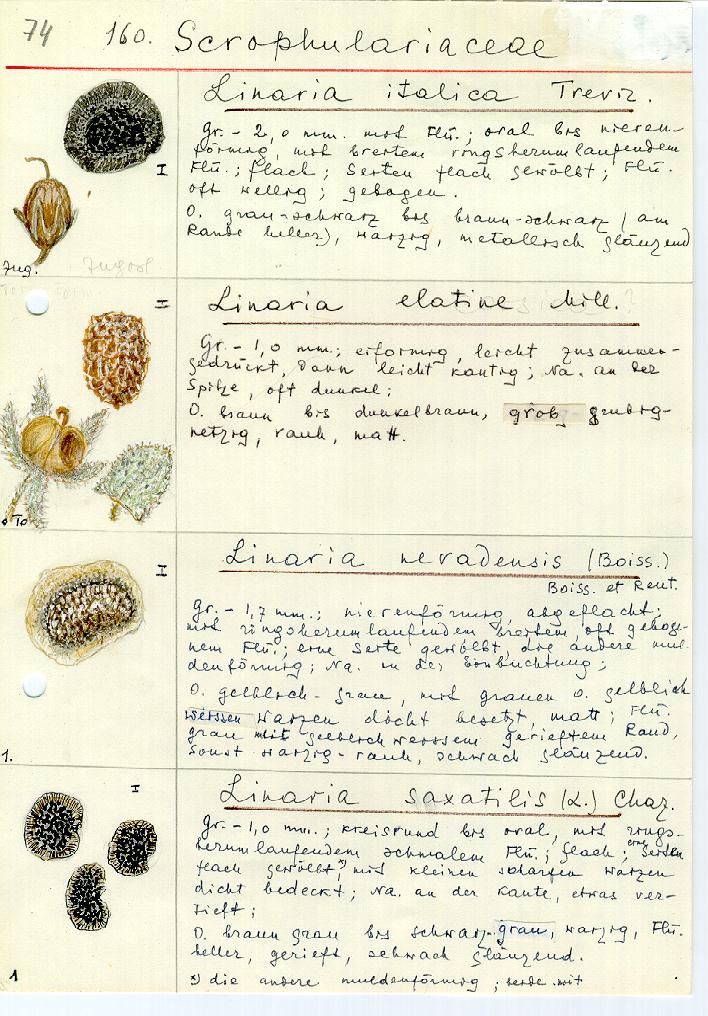 74 160. Scrophulariaceae
Linaria italica Trevir.
Gr. - 2,0 mm. mit Flü.; oval bis nieren-
förmig, mit breitem ringsherumlaufendem
Flü.; flach; Seiten flach gewölbt; Flü.
oft wellig; gebogen.
O. grau-schwarz bis braun-schwarz (am
Rande heller), warzig, metallisch glänzend
I
Jug.
Jugosl
Linaria elatine Mill.
Gr. - 1,0 mm.; eiförmig, leicht zusammen-
gedrückt, dann leicht kantig; Na. an der
Spitze, oft dunkel;
O. braun bis dunkelbraun, grob grubig-
netzig, rauh, matt.
II
To
Linaria nevadensis (Boiss.)
Boiss. et Reut.
Gr. - 1,7 mm.; nierenförmig, abgeflacht;
mit ringsherumlaufendem breitem, oft geboge-
nem Flü.; eine Seite gewölbt, die andere mul-
denförmig; Na. in der Einbuchtung;
O. gelblich-grau, mit grauen o. gelblich
weissen Warzen dicht besetzt, matt; Flü.
grau mit gelblich weissem gerieftem Rand,
sonst warzig-rauh, schwach glänzend.
I
1.
Linaria saxatilis (L.) Chaz.
Gr. - 1,0 mm.; kreisrund bis oval, mit rings-
herumlaufendem schmalem Flü.; flach; eine Seite
flach gewölbt, *) mit kleinen scharfen Warzen
dicht bedeckt; Na. an der Kante, etwas ver-
tieft;
O. braun grau bis schwarz-grau, warzig, Flü.
heller, gerieft, schwach glänzend.
*) die andere muldenförmig; beide mit
I
1